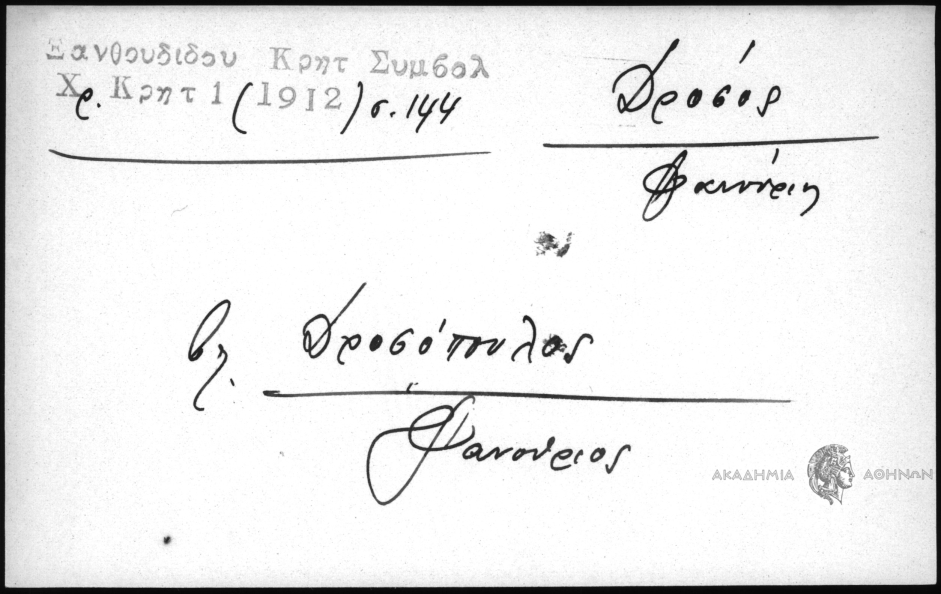 Ξανθουδιδου Κρητ Συμβολ
Χρ. Κρητ 1 (1912) σ. 144
Δροσός
Φανούρης
βλ. Δροσόπουλος
Φανούριος
ΑΚΑΔΗΜΙΑ ΑΘΗΝΩΝ